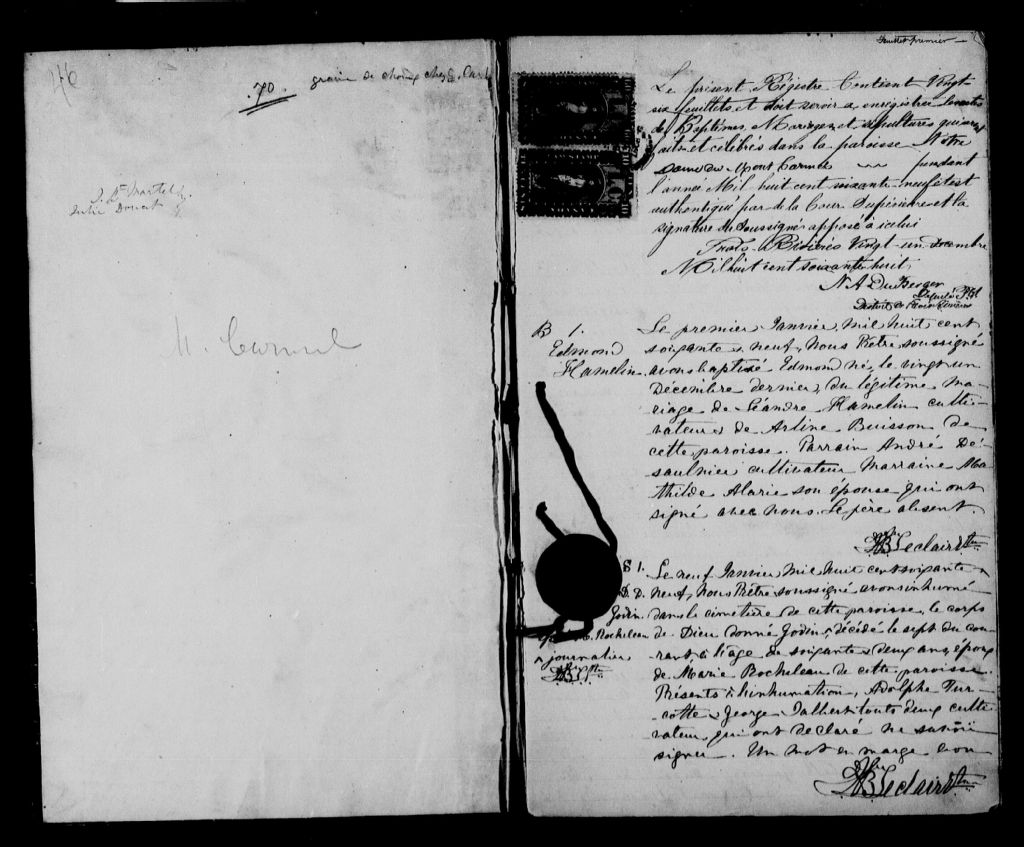 46
70. graine de choux chez
Mt. Carmel
Feuillet premier
Le présent Régistre Contient Vingt-
six feuillets et doit servir à enregistrer les actes
de Baptêmes, Mariages, et sépultures qui seront
faits et célébrés dans la paroisse Notre
Dame du Mont Carmel pendant
l'année Mil huit cent soixante-neuf et est
authentiqué par de la Cour Supérieure et la
signature du Soussigné apposé à icelui
Trois-Rivières Vingt-un décembre
Mil huit cent soixante huit.
N A DuBerger
Député P.
District de Trois Rivières
B 1.
Edmond
Hamelin
Le premier Janvier, mil huit cent
soixante & neuf, Nous Prêtre soussigné
avons baptisé Edmond né, le vingt un
Décembre dernier, du légitime ma-
riage de Léandre Hamelin culti-
vateur & de Arline Buisson de
cette paroisse. Parrain André De-
saulnier cultivateur Marraine Ma-
thilde Alarie son épouse qui ont
signé avec nous. Le père absent.
JB Leclair Ptre
S 1.
D. D.
Godin
Rocheleau
^ journalier
Le neuf Janvier mil huit cent soixante &
neuf, Nous Prêtre soussigné avons inhumé
dans le cimetière de cette paroisse, le corps
de Dieu donné Godin ^ décédé le sept du cou-
rant à l'âge de soixante & deux ans, époux
de Marie Rocheleau de cette paroisse.
Présents à l'inhumation, Adolphe Tur-
cotte & George Jalbert touts deux culti-
vateurs qui ont déclaré ne savoir
signer. Un mot en marge bon
JB Leclair Ptre